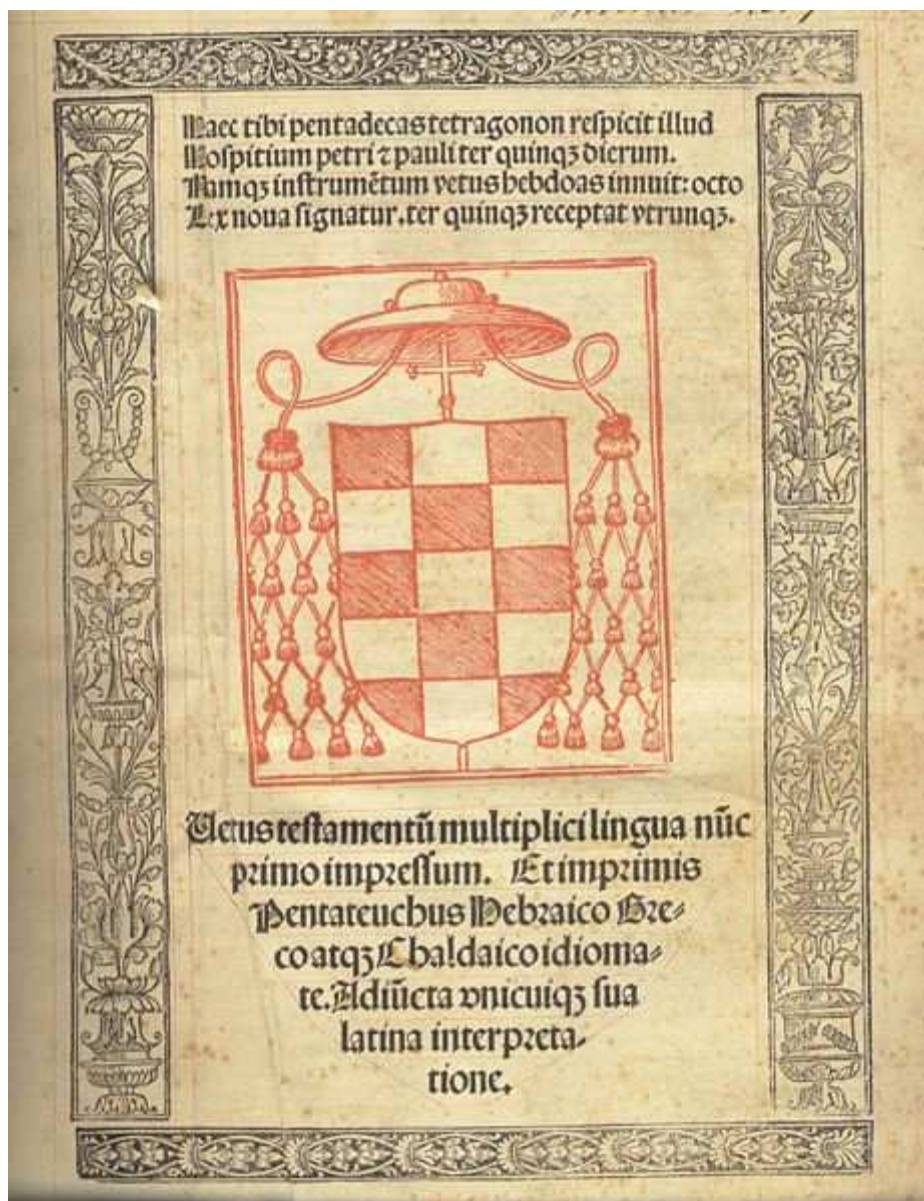 Haec tibi pentadecas tetragonon respicit illud
Hospitium petri ⁊ pauli ter quinqꝫ dierum.
Namqꝫ instrumētum vetus hebdoas innuit: octo
Lex noua signatur. ter quinqꝫ receptat vtrunqꝫ.
Vetus testamentū multiplici lingua nūc
primo impressum. Et imprimis
Pentateuchus Hebraico Gre⸗
co atqꝫ Chaldaico idioma⸗
te. Adiūcta vnicuiqꝫ sua
latina interpreta⸗
tione.